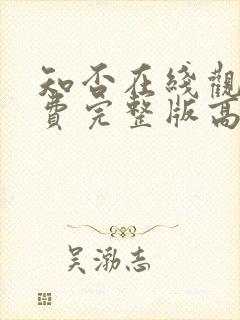 知否在綫觀
費完整版高
吴渤志